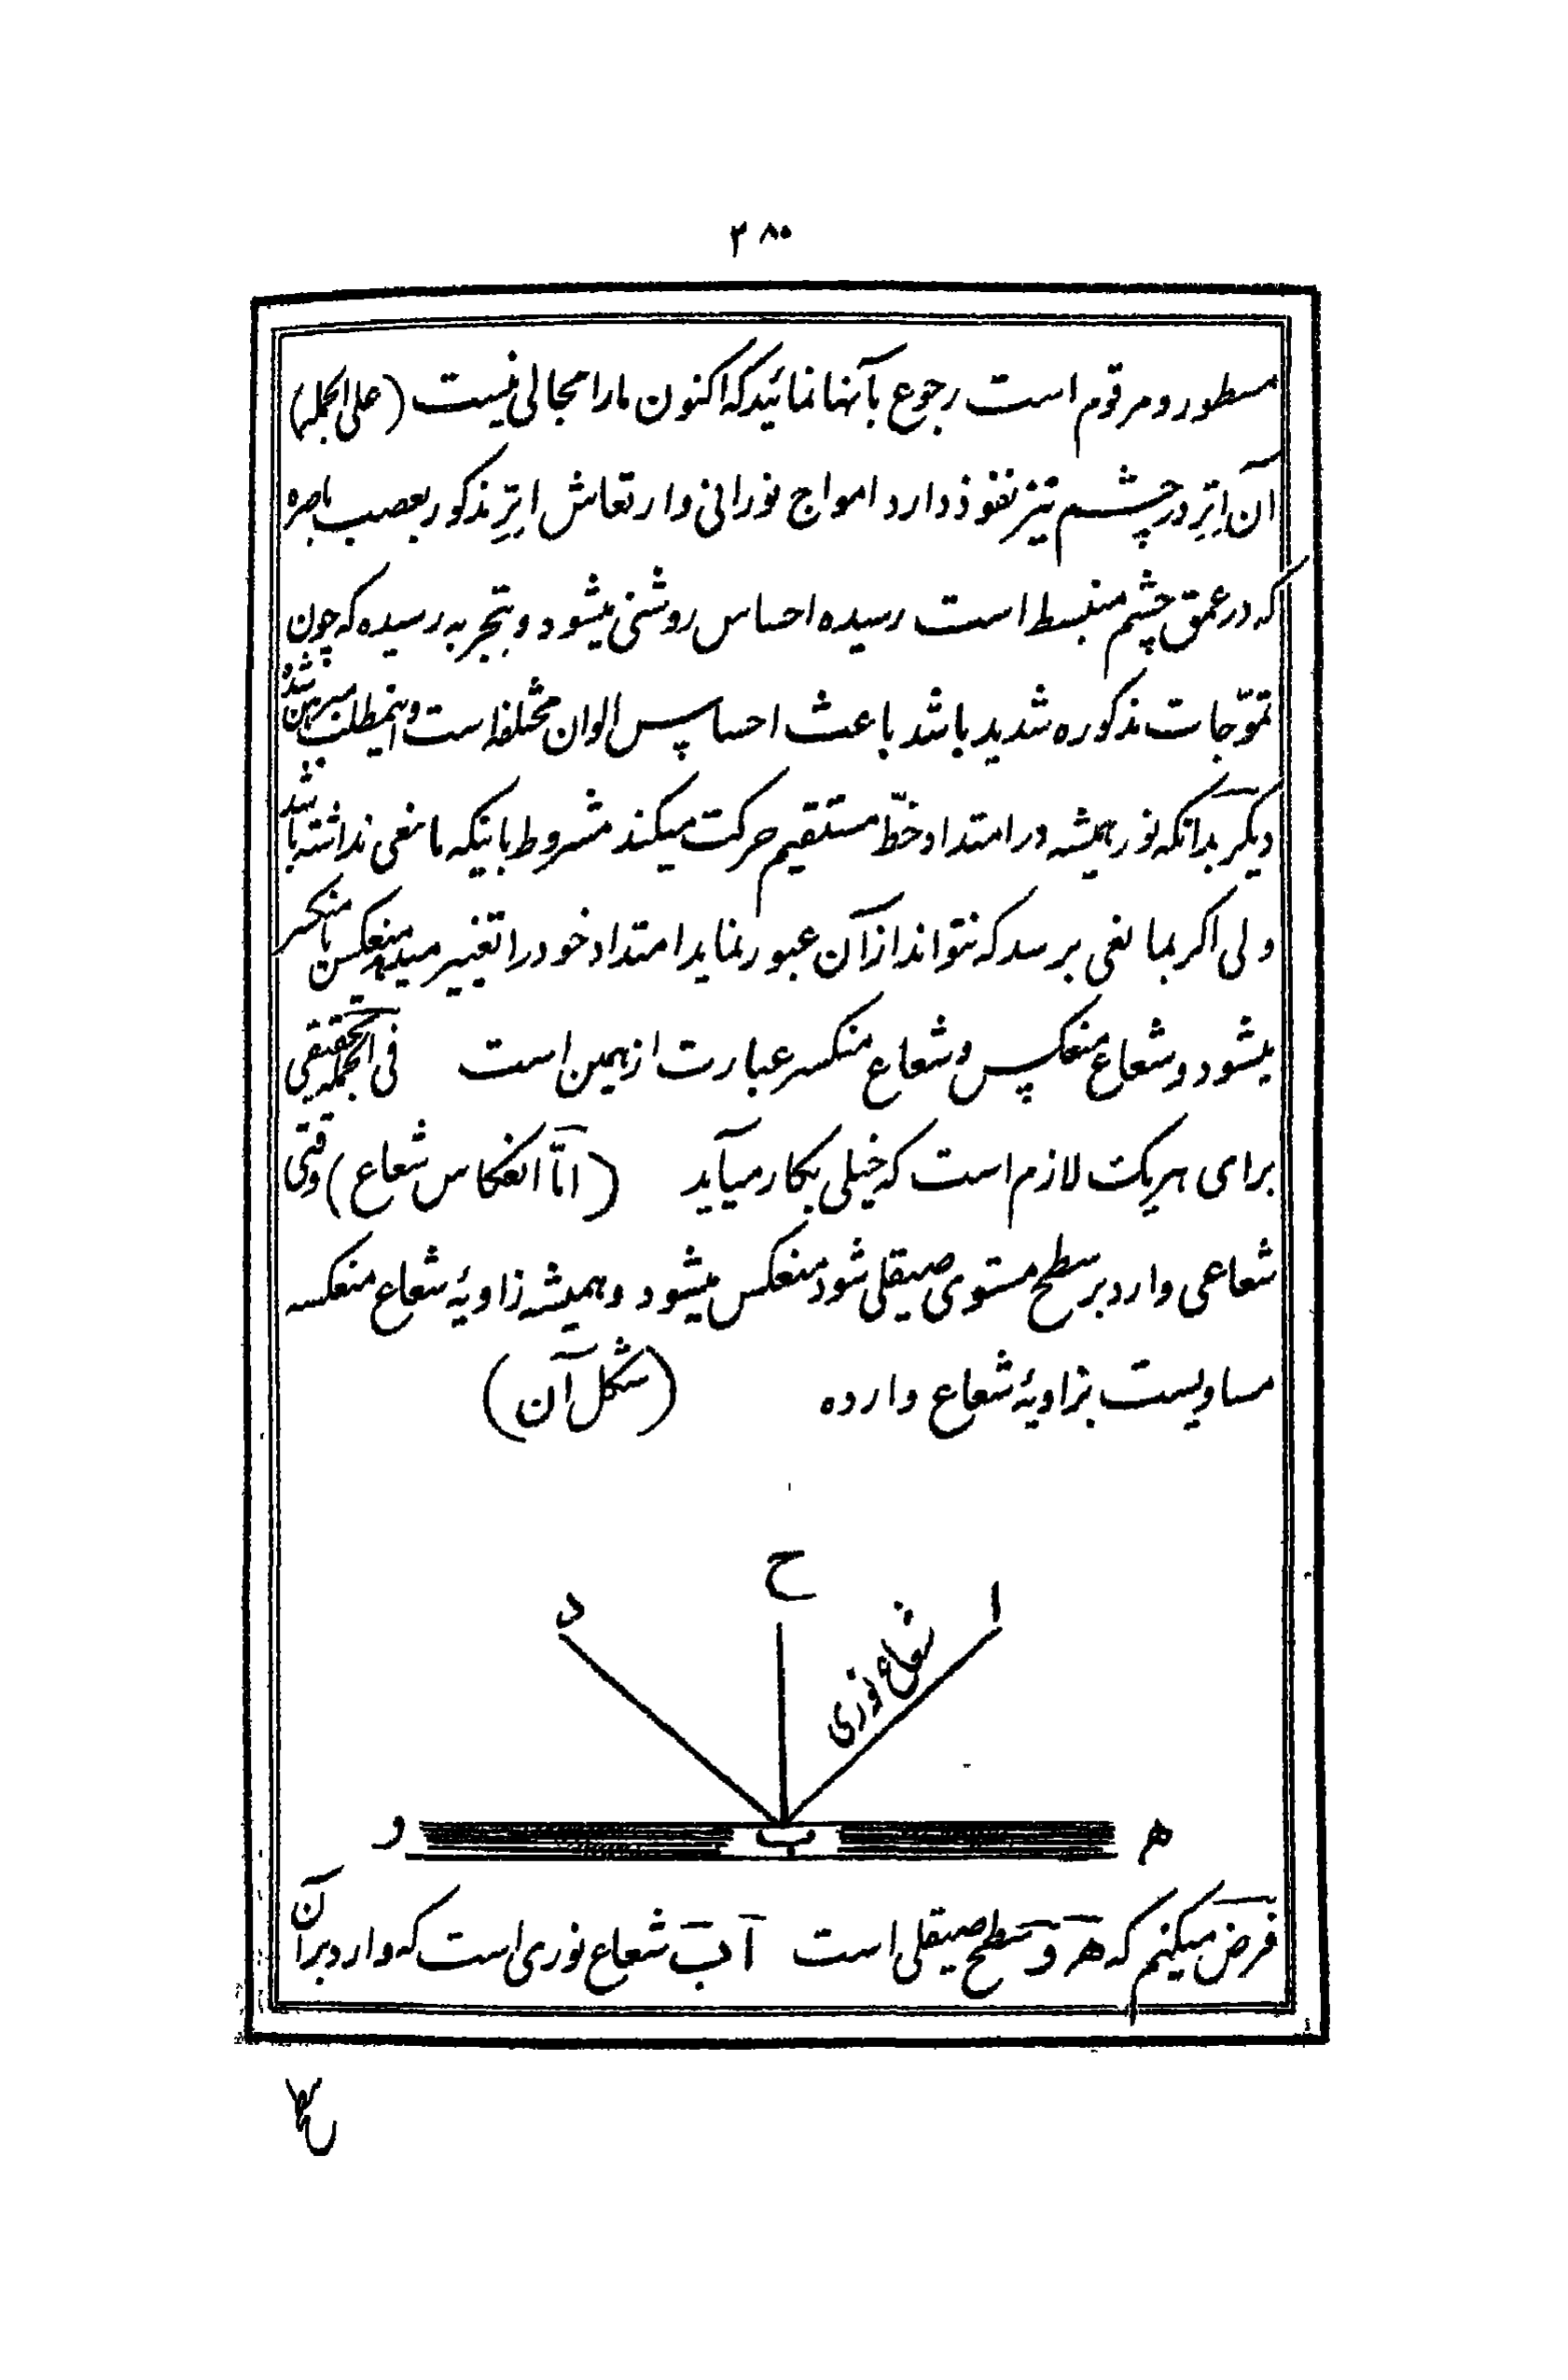 ۲۸۰
مسطور و مرقوم است رجوع بآنها نمائید که اکنون ما را مجالی نیست (علی الجمله)
آن اِتِر در چشم نیز نفوذ دارد امواج نورانی و ارتعاش اتِرِ مذکور بعصب باصره
که در عمق چشم منبسط است رسیده احساس روشنی میشود و بتجربه رسیده که چون
تموّجات مذکوره شدید باشد باعث احساس الوان مختلفه است و اینمطلب مبرهن شده
دیگر بدانکه نور همیشه در امتداد خطّ مستقیم حرکت میکند مشروط باینکه مانعی نداشته باشد
ولی اگر بمانعی برسد که نتواند از آن عبور نماید امتداد خود را تغییر میدهد منعکس یا منکسر
میشود و شعاع منعکس و شعاع منکسر عبارت از همین است فی الجمله تحقیقی
برای هر یک لازم است که خیلی بکار میآید (امّا انعکاس شعاع) وقتی
شعاعی وارد بر سطح مستوی صیقلی شود منعکس میشود و همیشه زاویهٔ شعاع منعکسه
مساویست بزاویهٔ شعاع وارده (شکل آن)
ح
د ا
شعاع نوری
و ب ه
فرض میکنیم که ه و سطح صیقلی است آ ب شعاع نوری است که وارد بر آن